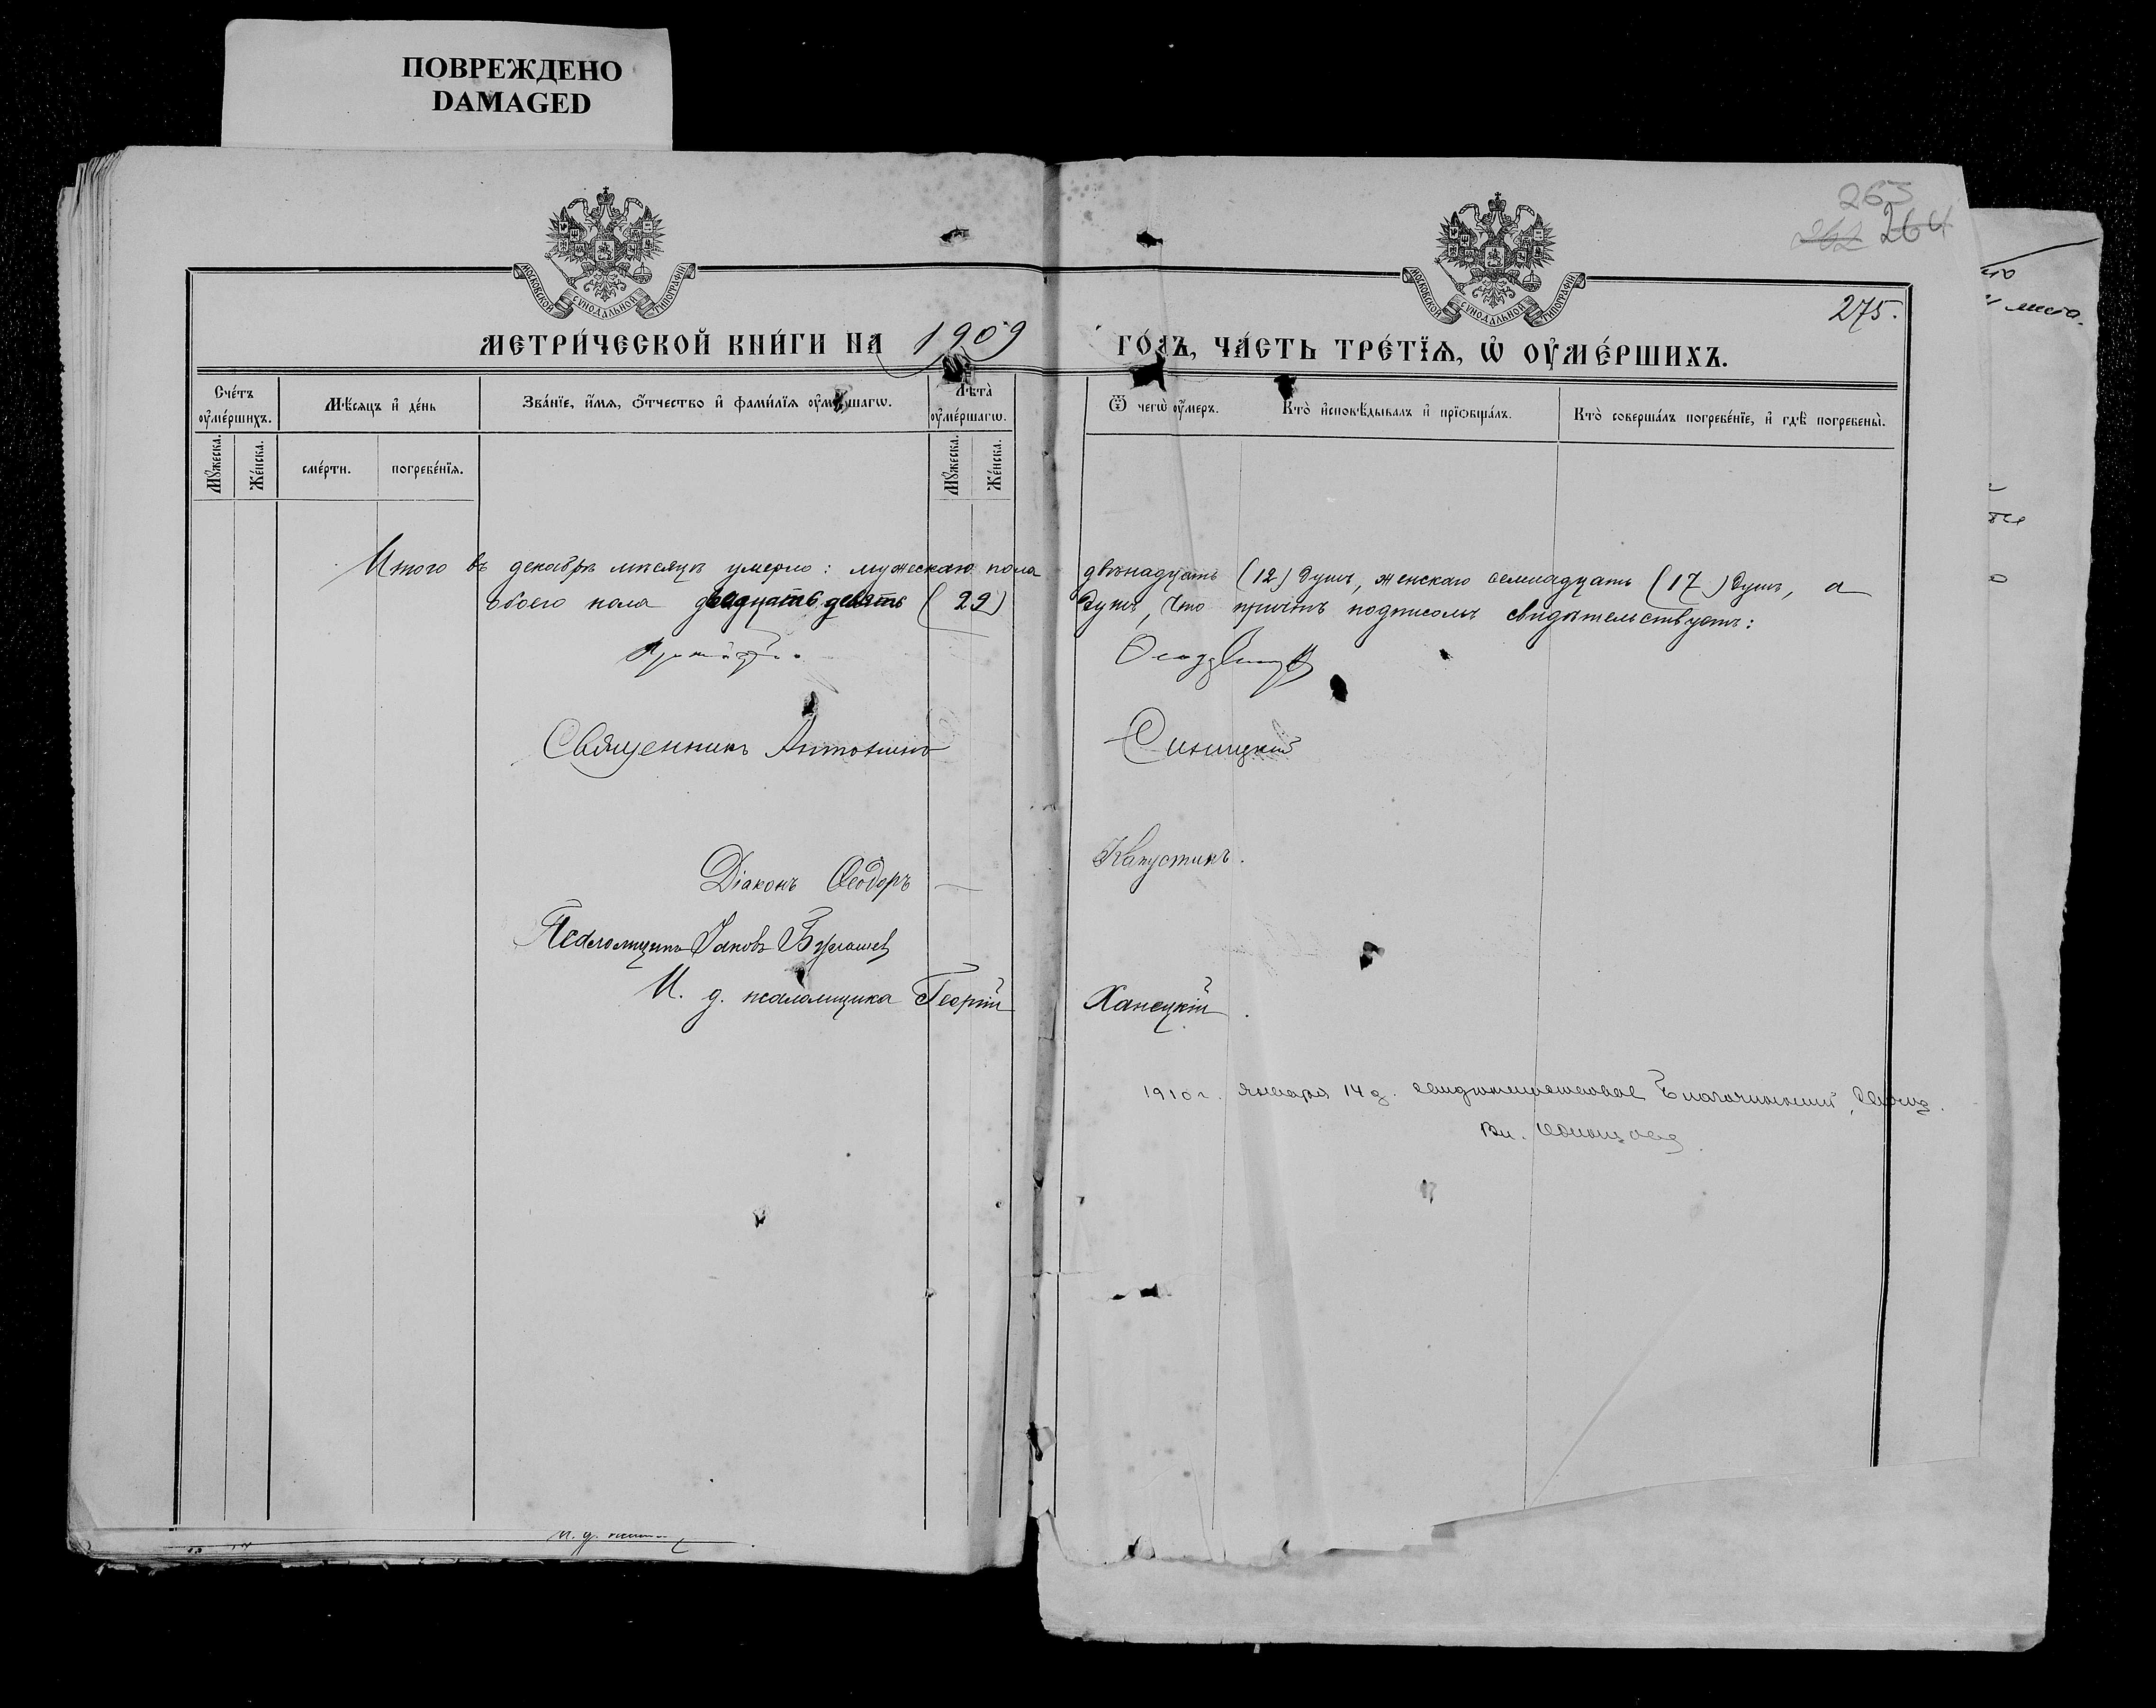 ПОВРЕЖДЕНО
DAMAGED
263
262 264
275.
МОСКОВСКОЙ СѴНОДАЛЬНОЙ ТИПОГРАФІИ
МОСКОВСКОЙ СѴНОДАЛЬНОЙ ТИПОГРАФІИ
МЕТРИ́ЧЕСКОЙ КНИ́ГИ НА 1909 ГО́ДЪ, ЧА́СТЬ ТРЕ́ТІѦ, Ѡ ОУ҆МЕ́РШИХЪ.
Сче́тъ оу҆ме́ршихъ.
Мѣ́сѧцъ и҆ де́нь
Зва́нїе, и҆́мѧ, ѻ҆́тчество и҆ фами́лїѧ оу҆ме́ршагѡ.
Лѣ́та оу҆ме́ршагѡ.
Ѿ чегѡ̀ оу҆́меръ.
Кто̀ и҆сповѣ́дывалъ и҆ прїѡбща́лъ.
Кто̀ соверша́лъ погребе́нїе, и҆ гдѣ̀ погребены̀.
Мꙋ́жеска.
Же́нска.
сме́рти.
погребе́нїѧ.
Мꙋ́жеска.
Же́нска.
Итого въ декабрѣ мѣсяцѣ умерло: мужескаго пола двѣнадцать (12) душъ, женскаго семнадцать (17) душъ, а
обоего пола двадцать девять (29) душъ, что причтъ подписомъ свидѣтельствуетъ:
Священникъ Антонинъ Синицкій
Діаконъ Ѳеодоръ — Капустинъ.
Псаломщикъ Іаковъ
И. д. псаломщика Георгій Ханецкій.
1910 г. января 14 д. свидѣтельствовалъ Благочинный,
Вл.
И. д.